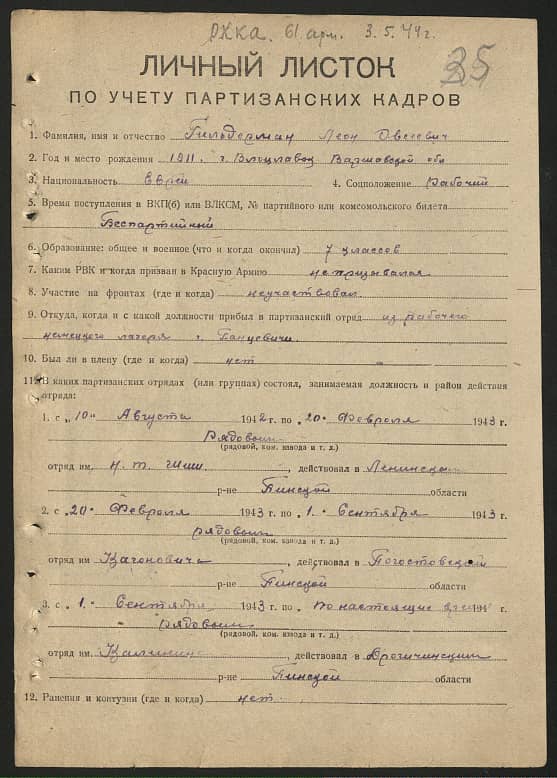 РККА. 61 арм. 3.5.44г.
35
ЛИЧНЫЙ ЛИСТОК
ПО УЧЕТУ ПАРТИЗАНСКИХ КАДРОВ
1. Фамилия, имя и отчество Гильдерман Леон Овсеевич
2. Год и место рождения 1911. г. Влоцлавск Варшавской обл
3. Национальность Еврей 4. Соцположение Рабочий
5. Время поступления в ВКП(б) или ВЛКСМ, № партийного или комсомольского билета
Беспартийный
6. Образование: общее и военное (что и когда окончил) 7 классов
7. Каким РВК и когда призван в Красную Армию непризывался
8. Участие на фронтах (где и когда) неучаствовал.
9. Откуда, когда и с какой должности прибыл в партизанский отряд из рабочего
немецкого лагеря г. Ганцевичи.
10. Был ли в плену (где и когда) нет
11. В каких партизанских отрядах (или группах) состоял, занимаемая должность и район действия
отряда:
1. с „10" Августа 1942 г. по „20" Февраля 1943 г.
Рядовым
(рядовой, ком. взвода и т. д.)
отряд им. , действовал в Ленинском
р-не Пинской области
2. с „20" Февраля 1943 г. по „1" Сентября 1943 г.
рядовым
(рядовой, ком. взвода и т. д.)
отряд им Кагоновича , действовал в Погостовском
р-не Пинской области
3. с „1" Сентября 1943 г. по настоящие г.
рядовым
(рядовой, ком. взвода и т. д.)
отряд им. Калинина , действовал в Дрогичинским
р-не Пинской области
12. Ранения и контузии (где и когда) нет